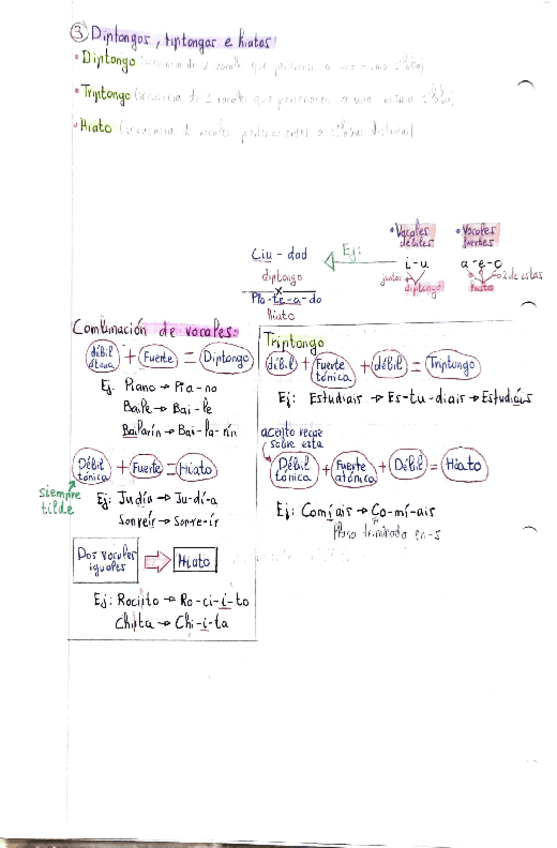 ③ Diptongos, triptongos e hiatos:
• Diptongo (secuencia de 2 vocales que pertenecen a una misma sílaba)
• Triptongo (secuencia de 3 vocales que pertenecen a una misma sílaba)
• Hiato (secuencia 2 vocales pertenecientes a sílabas distintas)
• Vocales débiles
• Vocales fuertes
i - u
a - e - o
juntas
diptongo
o 2 de estas
hiato
Ej:
Ciu - dad
diptongo
Pla - te - a - do
hiato
Combinación de vocales:
débil átona + Fuerte = Diptongo
Ej. Piano → Pia - no
Baile → Bai - le
Bailarín → Bai - la - rín
Débil tónica + Fuerte = Hiato
siempre tilde
Ej: Judía → Ju - dí - a
Sonreír → Sonre - ír
Dos vocales iguales ⇒ Hiato
Ej: Rociito → Ro - ci - i - to
Chiita → Chi - i - ta
Triptongo
débil + Fuerte tónica + débil = Triptongo
Ej: Estudiais → Es - tu - diais → Estudiáis
acento recae sobre esta
Débil tónica + Fuerte atónica + Débil = Hiato
Ej: Comíais → Co - mí - ais
terminada en -s